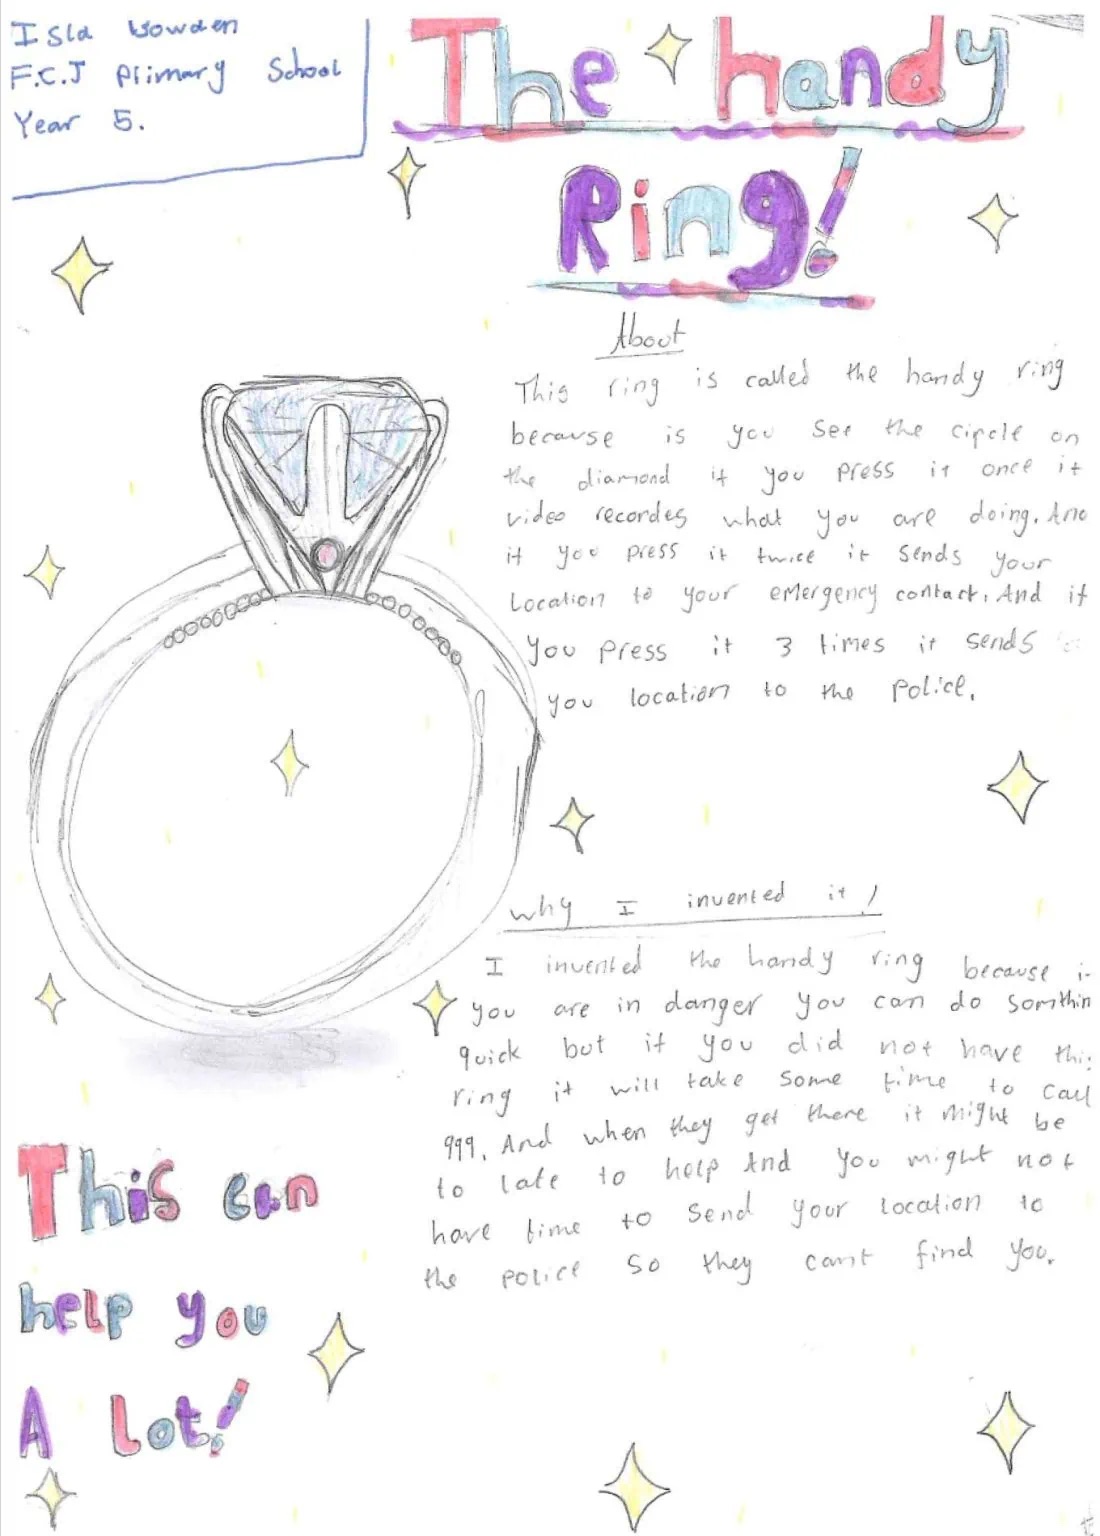 Isla Bowden
F.C.J Primary School
Year 5.
The handy
Ring!
About
This ring is called the handy ring
because is you see the circle on
the diamond if you press it once it
video recordes what you are doing. And
if you press it twice it sends your
Location to your emergency contact. And if
you press it 3 times it sends
you location to the police.
Why I invented it!
I invented the handy ring because i
you are in danger you can do somthin
quick but if you did not have thi
ring it will take some time to call
999. And when they get there it might be
to late to help And you might not
have time to send your location to
the police so they cant find you.
This can
help you
A lot!